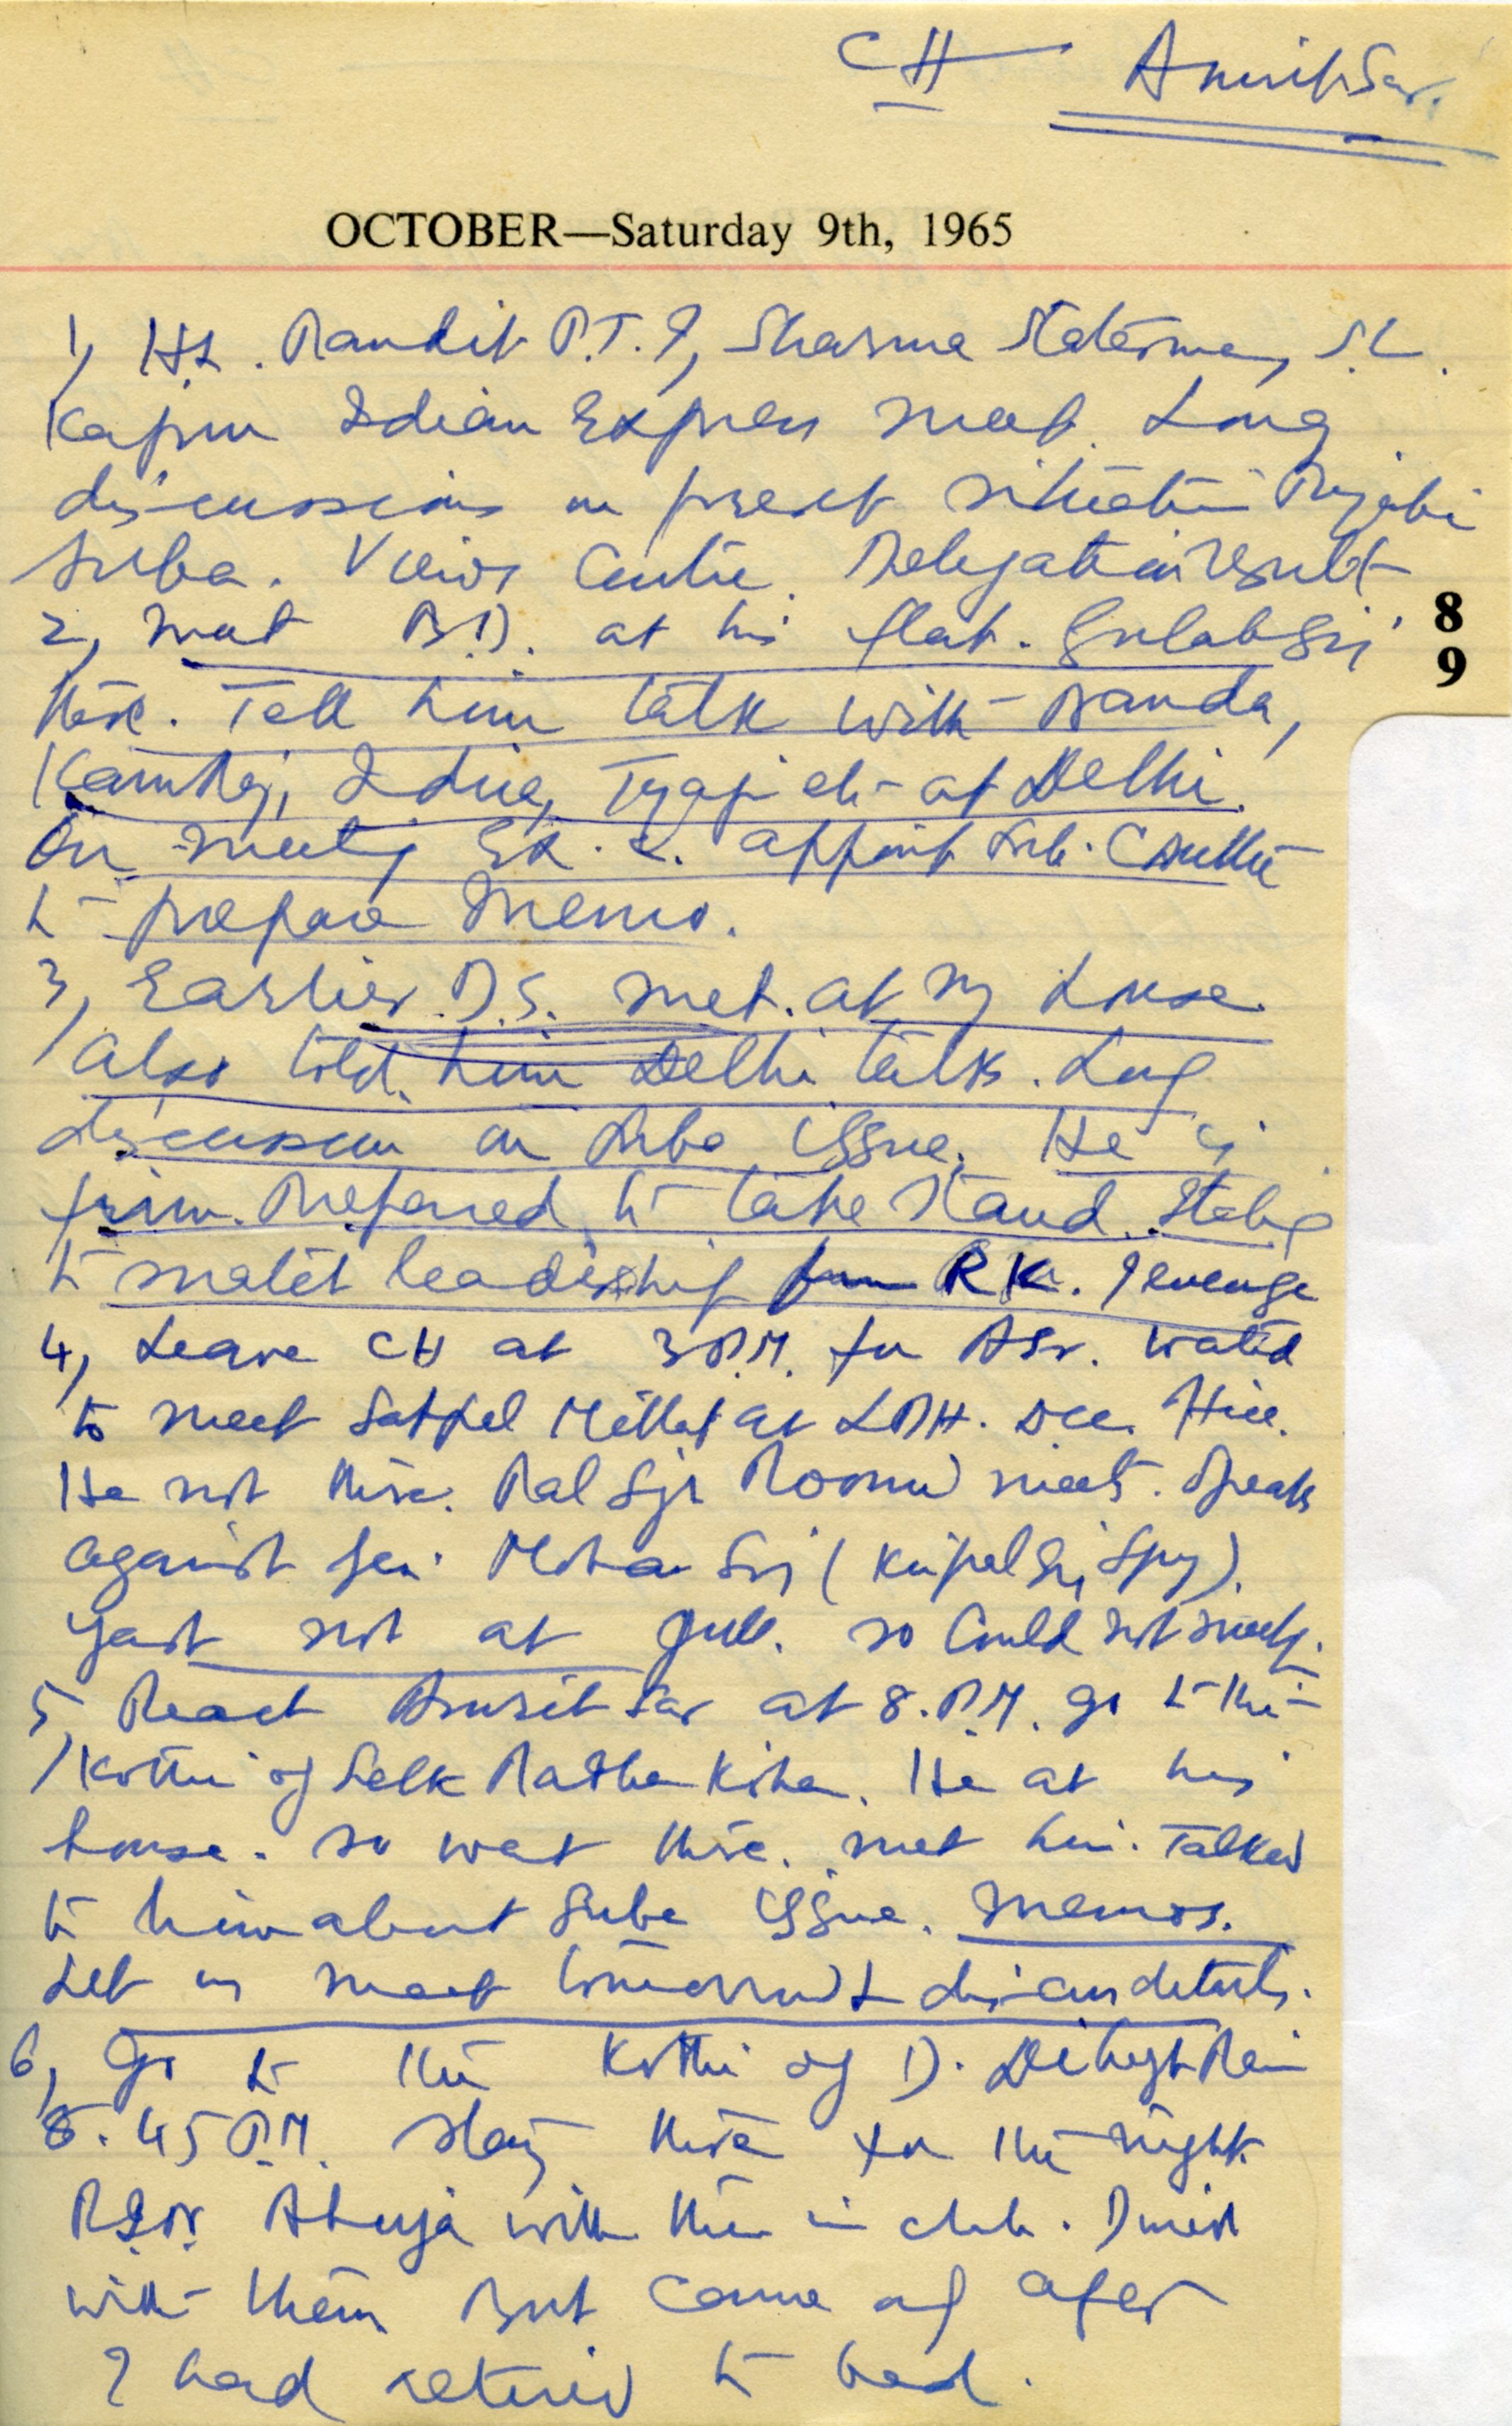 CH Amritsar.
OCTOBER—Saturday 9th, 1965
1, H.L. Pandit P.T.I, Sharma Statesman, S.L.
Kapur Indian Express meet. Long
discussions on present situation Punjabi
Suba. Views Centre. Delegation result
2, met B.D. at his flat. Gulab Sing
there. Tell him talk with Nanda,
Kamraj, Indira, Tyagi etc at Delhi.
On meeting Ex. C. appoint Sub. Committee
to prepare Memo.
3, Earlier D.S. met at my house.
Also told him Delhi talks. Long
discussion on Suba issue. He is
firm. Prepared to take stand.
to leadership from RK. revenge
4, Leave CH at 3 P.M. for ASr. wanted
to meet Satpal Mittal at LDH. Dcc.
He not there. Pal Sgh Roomi meets. Speaks
against Gen. Mohan Sing (Kirpal Sing Spy).
Yash not at Jull. so Could not meet.
5, Reach Amritsar at 8. P.M. go to the
Kothi of Radha Kishan. He at his
house. so went there. met him. Talked
to him about Suba issue. Memos.
Let us meet tomorrow & discuss details.
6, Go to the Kothi of D.
8.45 P.M. stay there for the night.
Ahuja with them in club. Dined
with them But came after
I had retired to bed.